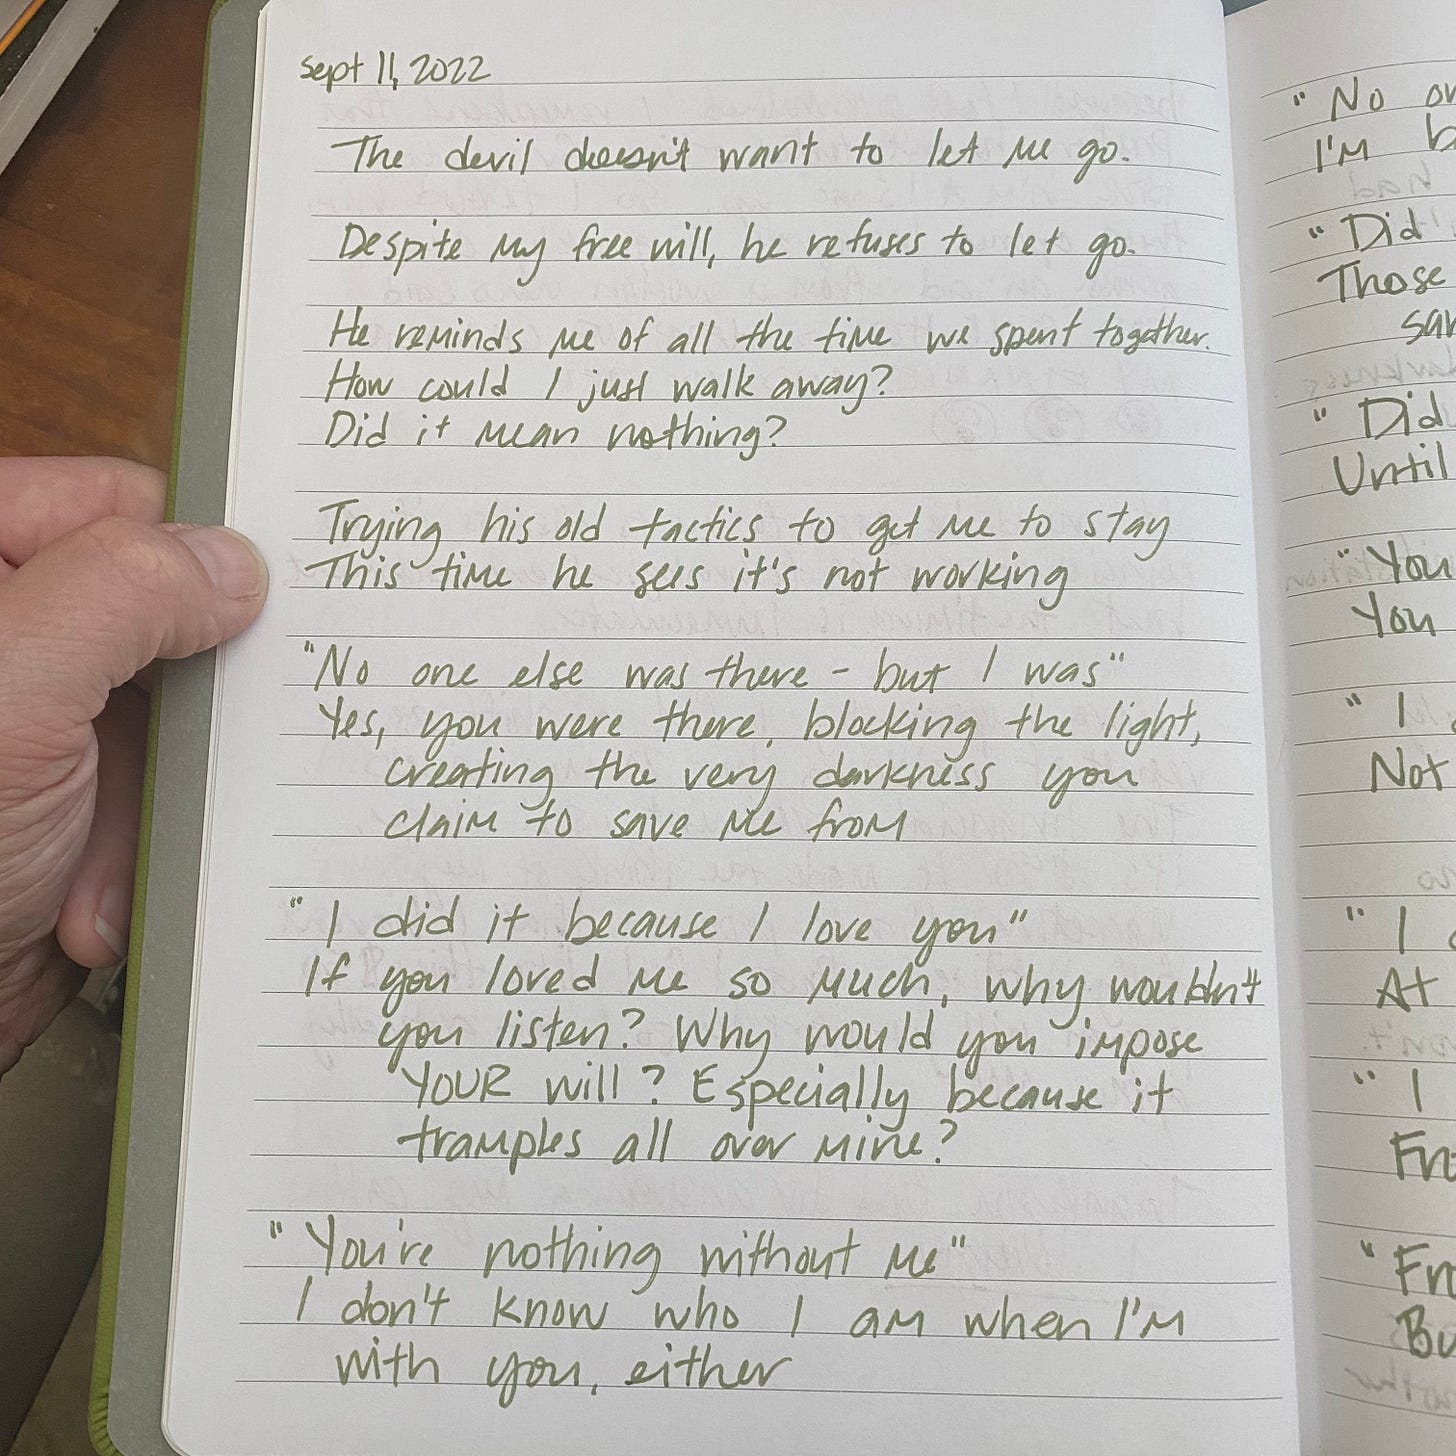 Sept 11, 2022
The devil doesn't want to let me go.
Despite my free will, he refuses to let go.
He reminds me of all the time we spent together.
How could I just walk away?
Did it mean nothing?
Trying his old tactics to get me to stay
This time he sees it's not working
"No one else was there - but I was"
Yes, you were there, blocking the light,
creating the very darkness you
claim to save me from
"I did it because I love you"
If you loved me so much, why wouldn't
you listen? Why would you impose
YOUR will? Especially because it
tramples all over mine?
"You're nothing without me"
I don't know who I am when I'm
with you, either
"No
I'm
"Did
Those
"Did
Until
"You
You
"I
Not
"I
At
"I
"
Bu